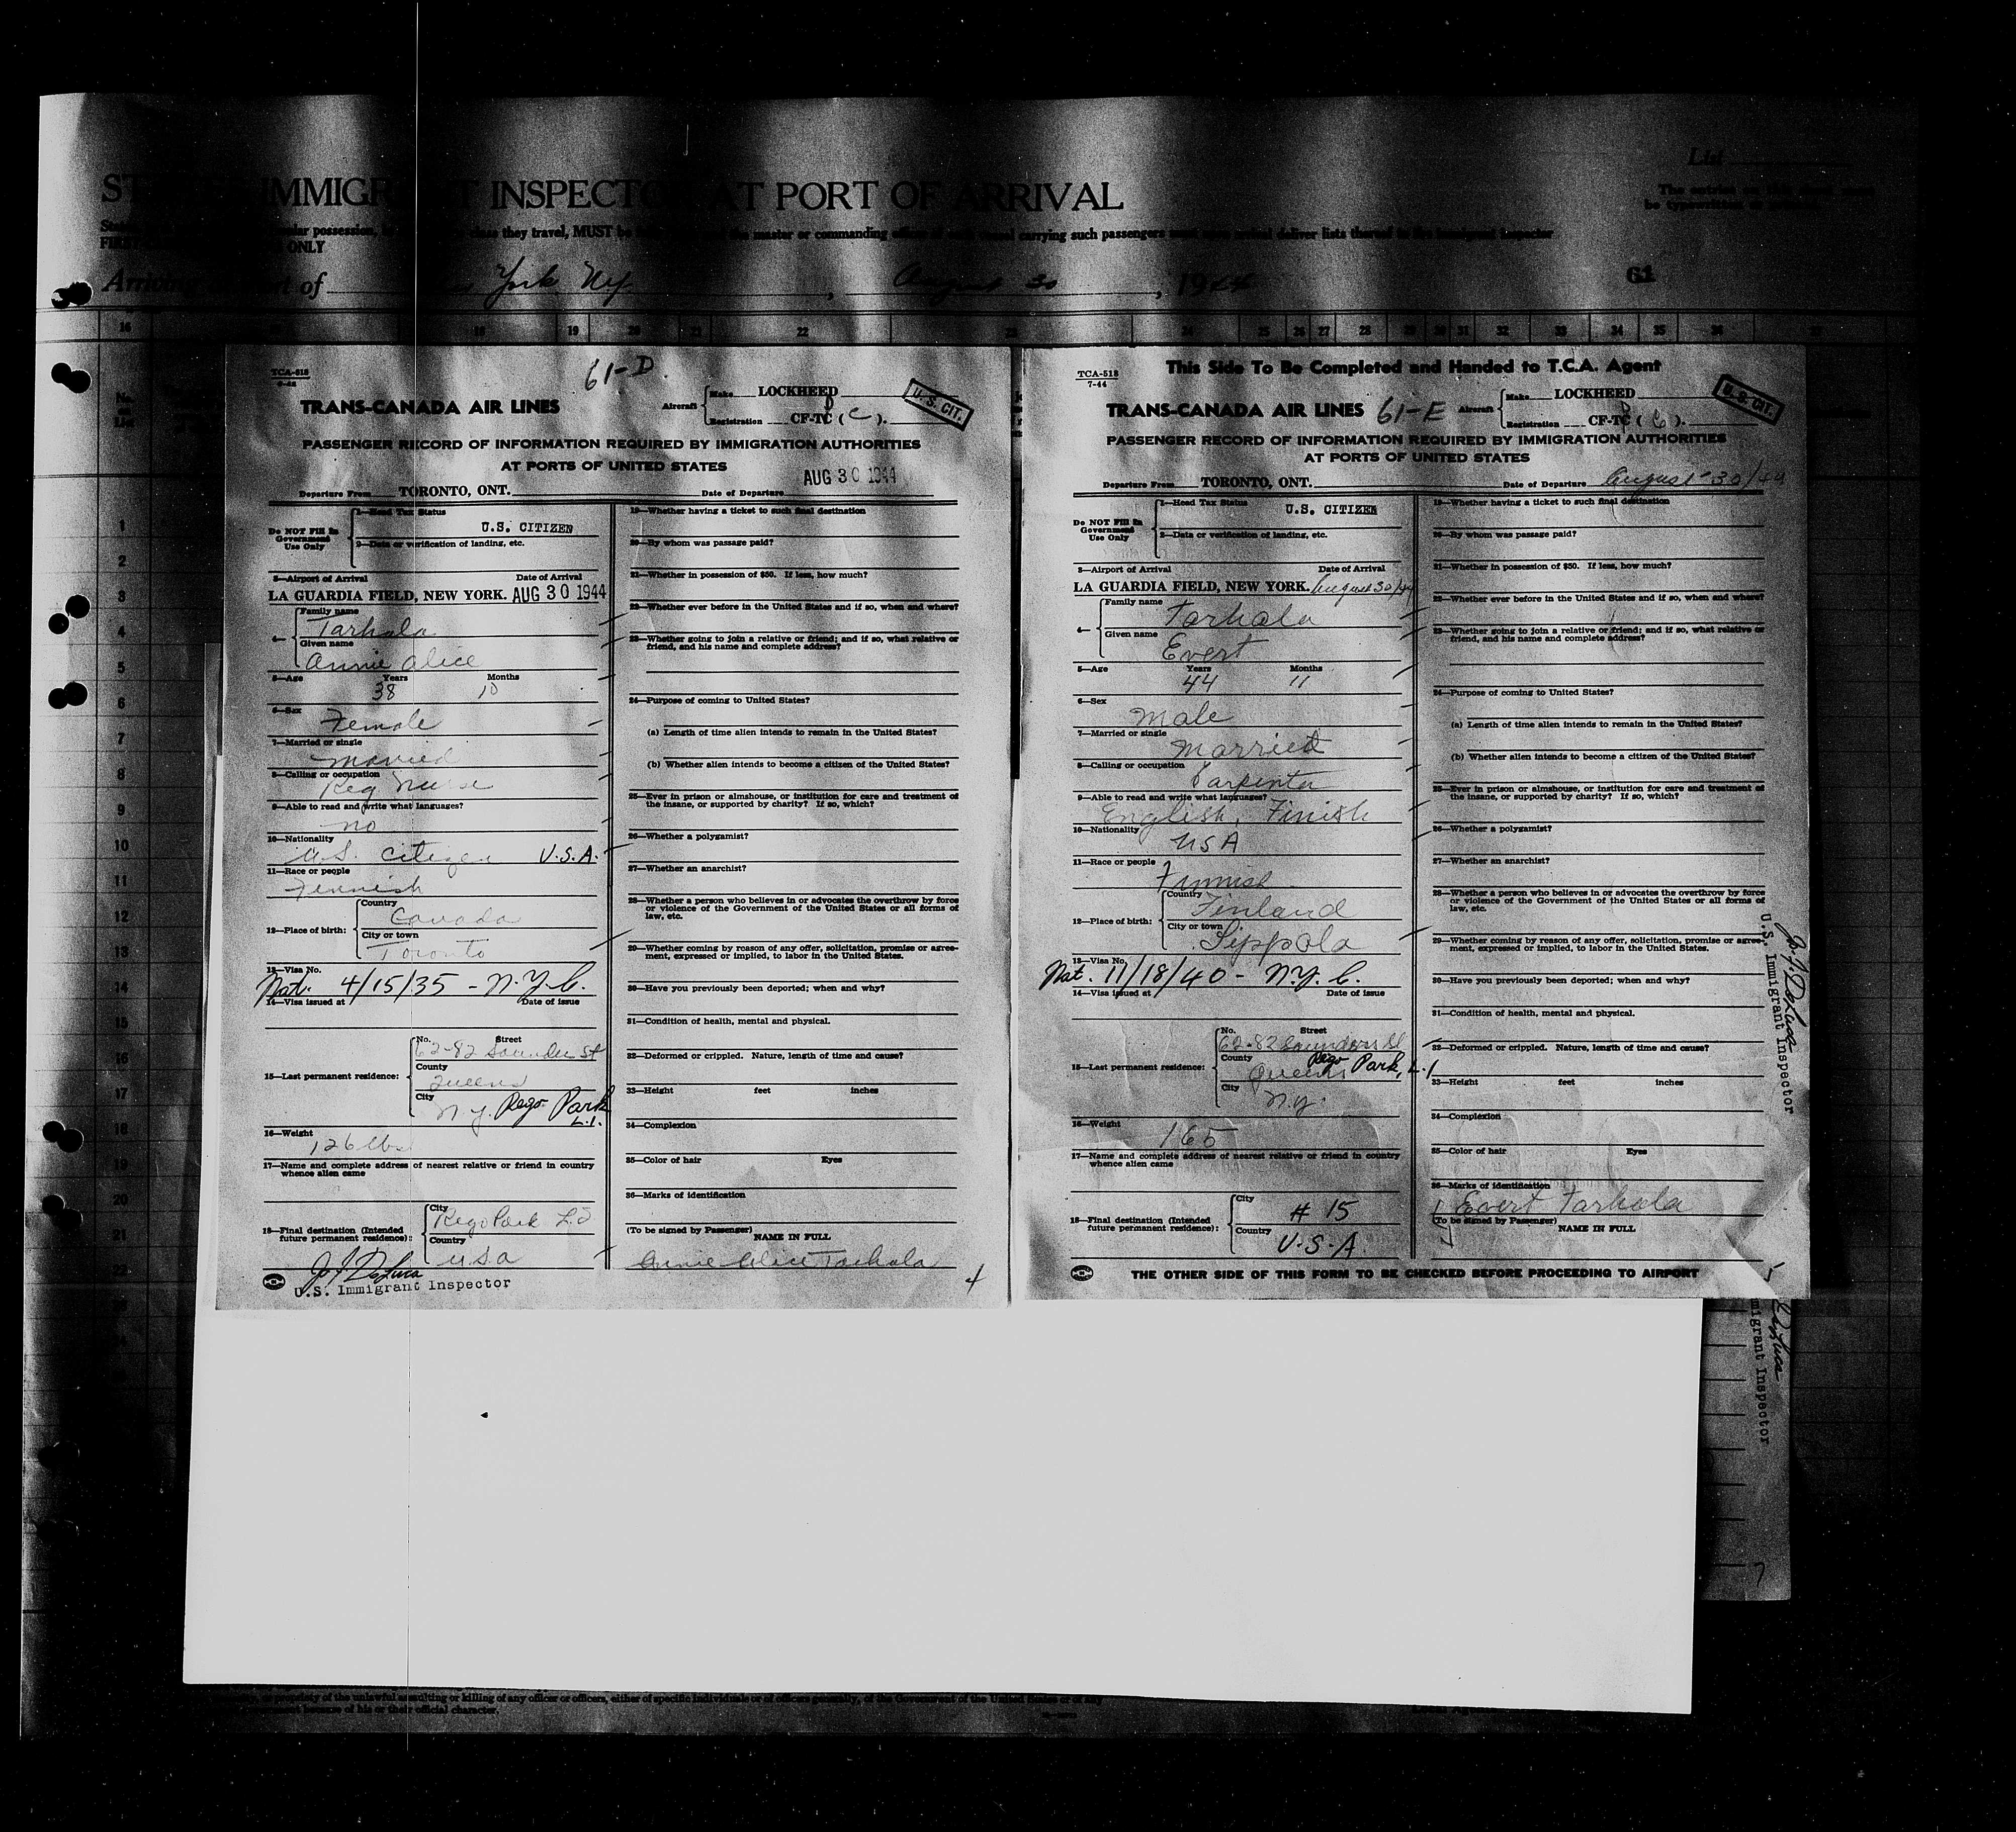 IMMIGR T INSPECTO AT PORT OF ARRIVAL
they travel, MUST be the master or commanding carrying such passengers deliver lists
ONLY
Arriving rt of York Ny , August 30 , 1944
61
16 18 19 20 21 22 23 24 25 26 27 28 29 30 31 32 33 34 35 36
TCA-518
61-D
TRANS-CANADA AIR LINES
Aircraft
Make LOCKHEED
Registration CF-TC ( C ).
U. S. CIT.
PASSENGER RECORD OF INFORMATION REQUIRED BY IMMIGRATION AUTHORITIES
AT PORTS OF UNITED STATES
AUG 30 1944
Departure From TORONTO, ONT. Date of Departure
Do NOT Fill In
Government
Use Only
1—Head Tax Status
U.S. CITIZEN
2—Data or verification of landing, etc.
3—Airport of Arrival Date of Arrival
LA GUARDIA FIELD, NEW YORK. AUG 30 1944
4—
Family name
Tarhala
Given name
Annie Alice
5—Age Years Months
38 10
6—Sex
Female
7—Married or single
married
8—Calling or occupation
Reg Nurse
9—Able to read and write what languages?
no
10—Nationality
U.S. citizen U.S.A.
11—Race or people
Finnish
12—Place of birth:
Country
Canada
City or town
Toronto
13—Visa No.
Nat. 4/15/35 - N.Y.C.
14—Visa issued at Date of issue
15—Last permanent residence:
No. Street
62-82 Saunders St
County
Queens
City
N.Y. Rego Park
L.I.
16—Weight
126 lbs
17—Name and complete address of nearest relative or friend in country
whence alien came
18—Final destination (Intended
future permanent residence):
City
Rego Park L.I.
Country
U.S.A
J. J. DeLuca
U.S. Immigrant Inspector
19—Whether having a ticket to such final destination
20—By whom was passage paid?
21—Whether in possession of $50. If less, how much?
22—Whether ever before in the United States and if so, when and where?
23—Whether going to join a relative or friend; and if so, what relative or
friend, and his name and complete address?
24—Purpose of coming to United States?
(a) Length of time alien intends to remain in the United States?
(b) Whether alien intends to become a citizen of the United States?
25—Ever in prison or almshouse, or institution for care and treatment of
the insane, or supported by charity? If so, which?
26—Whether a polygamist?
27—Whether an anarchist?
28—Whether a person who believes in or advocates the overthrow by force
or violence of the Government of the United States or all forms of
law, etc.
29—Whether coming by reason of any offer, solicitation, promise or agree-
ment, expressed or implied, to labor in the United States.
30—Have you previously been deported; when and why?
31—Condition of health, mental and physical.
32—Deformed or crippled. Nature, length of time and cause?
33—Height feet inches
34—Complexion
35—Color of hair Eyes
36—Marks of identification
(To be signed by Passenger) NAME IN FULL
Annie Alice Tarhala
4
This Side To Be Completed and Handed to T.C.A. Agent
TCA-518
7-44
TRANS-CANADA AIR LINES 61-E
Aircraft
Make LOCKHEED
Registration CF-TC ( ).
U. S. CIT.
PASSENGER RECORD OF INFORMATION REQUIRED BY IMMIGRATION AUTHORITIES
AT PORTS OF UNITED STATES
Departure From TORONTO, ONT. Date of Departure August 30/44
Do NOT Fill In
Government
Use Only
1—Head Tax Status
U.S. CITIZEN
2—Data or verification of landing, etc.
3—Airport of Arrival Date of Arrival
LA GUARDIA FIELD, NEW YORK. August 30/44
4—
Family name
Tarhala
Given name
Evert
5—Age Years Months
44 11
6—Sex
male
7—Married or single
Married
8—Calling or occupation
Carpenter
9—Able to read and write what languages?
English, Finish
10—Nationality
USA
11—Race or people
Finnish
12—Place of birth:
Country
Finland
City or town
Sippola
13—Visa No.
Nat. 11/18/40 - N.Y.C.
14—Visa issued at Date of issue
15—Last permanent residence:
No. Street
62-82 Saunders St
County
Queens Rego Park, L.I
City
N.Y.
16—Weight
165
17—Name and complete address of nearest relative or friend in country
whence alien came
18—Final destination (Intended
future permanent residence):
City
# 15
Country
U.S.A.
19—Whether having a ticket to such final destination
20—By whom was passage paid?
21—Whether in possession of $50. If less, how much?
22—Whether ever before in the United States and if so, when and where?
23—Whether going to join a relative or friend; and if so, what relative or
friend, and his name and complete address?
24—Purpose of coming to United States?
(a) Length of time alien intends to remain in the United States?
(b) Whether alien intends to become a citizen of the United States?
25—Ever in prison or almshouse, or institution for care and treatment of
the insane, or supported by charity? If so, which?
26—Whether a polygamist?
27—Whether an anarchist?
28—Whether a person who believes in or advocates the overthrow by force
or violence of the Government of the United States or all forms of
law, etc.
29—Whether coming by reason of any offer, solicitation, promise or agree-
ment, expressed or implied, to labor in the United States.
30—Have you previously been deported; when and why?
31—Condition of health, mental and physical.
32—Deformed or crippled. Nature, length of time and cause?
33—Height feet inches
34—Complexion
35—Color of hair Eyes
36—Marks of identification
Evert Tarhala
(To be signed by Passenger) NAME IN FULL
THE OTHER SIDE OF THIS FORM TO BE CHECKED BEFORE PROCEEDING TO AIRPORT
5
J. J. DeLuca
U.S. Immigrant Inspector
DeLuca
migrant Inspector
7
1
2
3
4
5
6
7
8
9
10
11
12
13
14
15
16
17
18
19
20
21
22
or propriety of the unlawful assaulting or killing of any officer or officers, either of specific individuals or of officers generally, of the Government of the United States or of any
because of his or their official character.